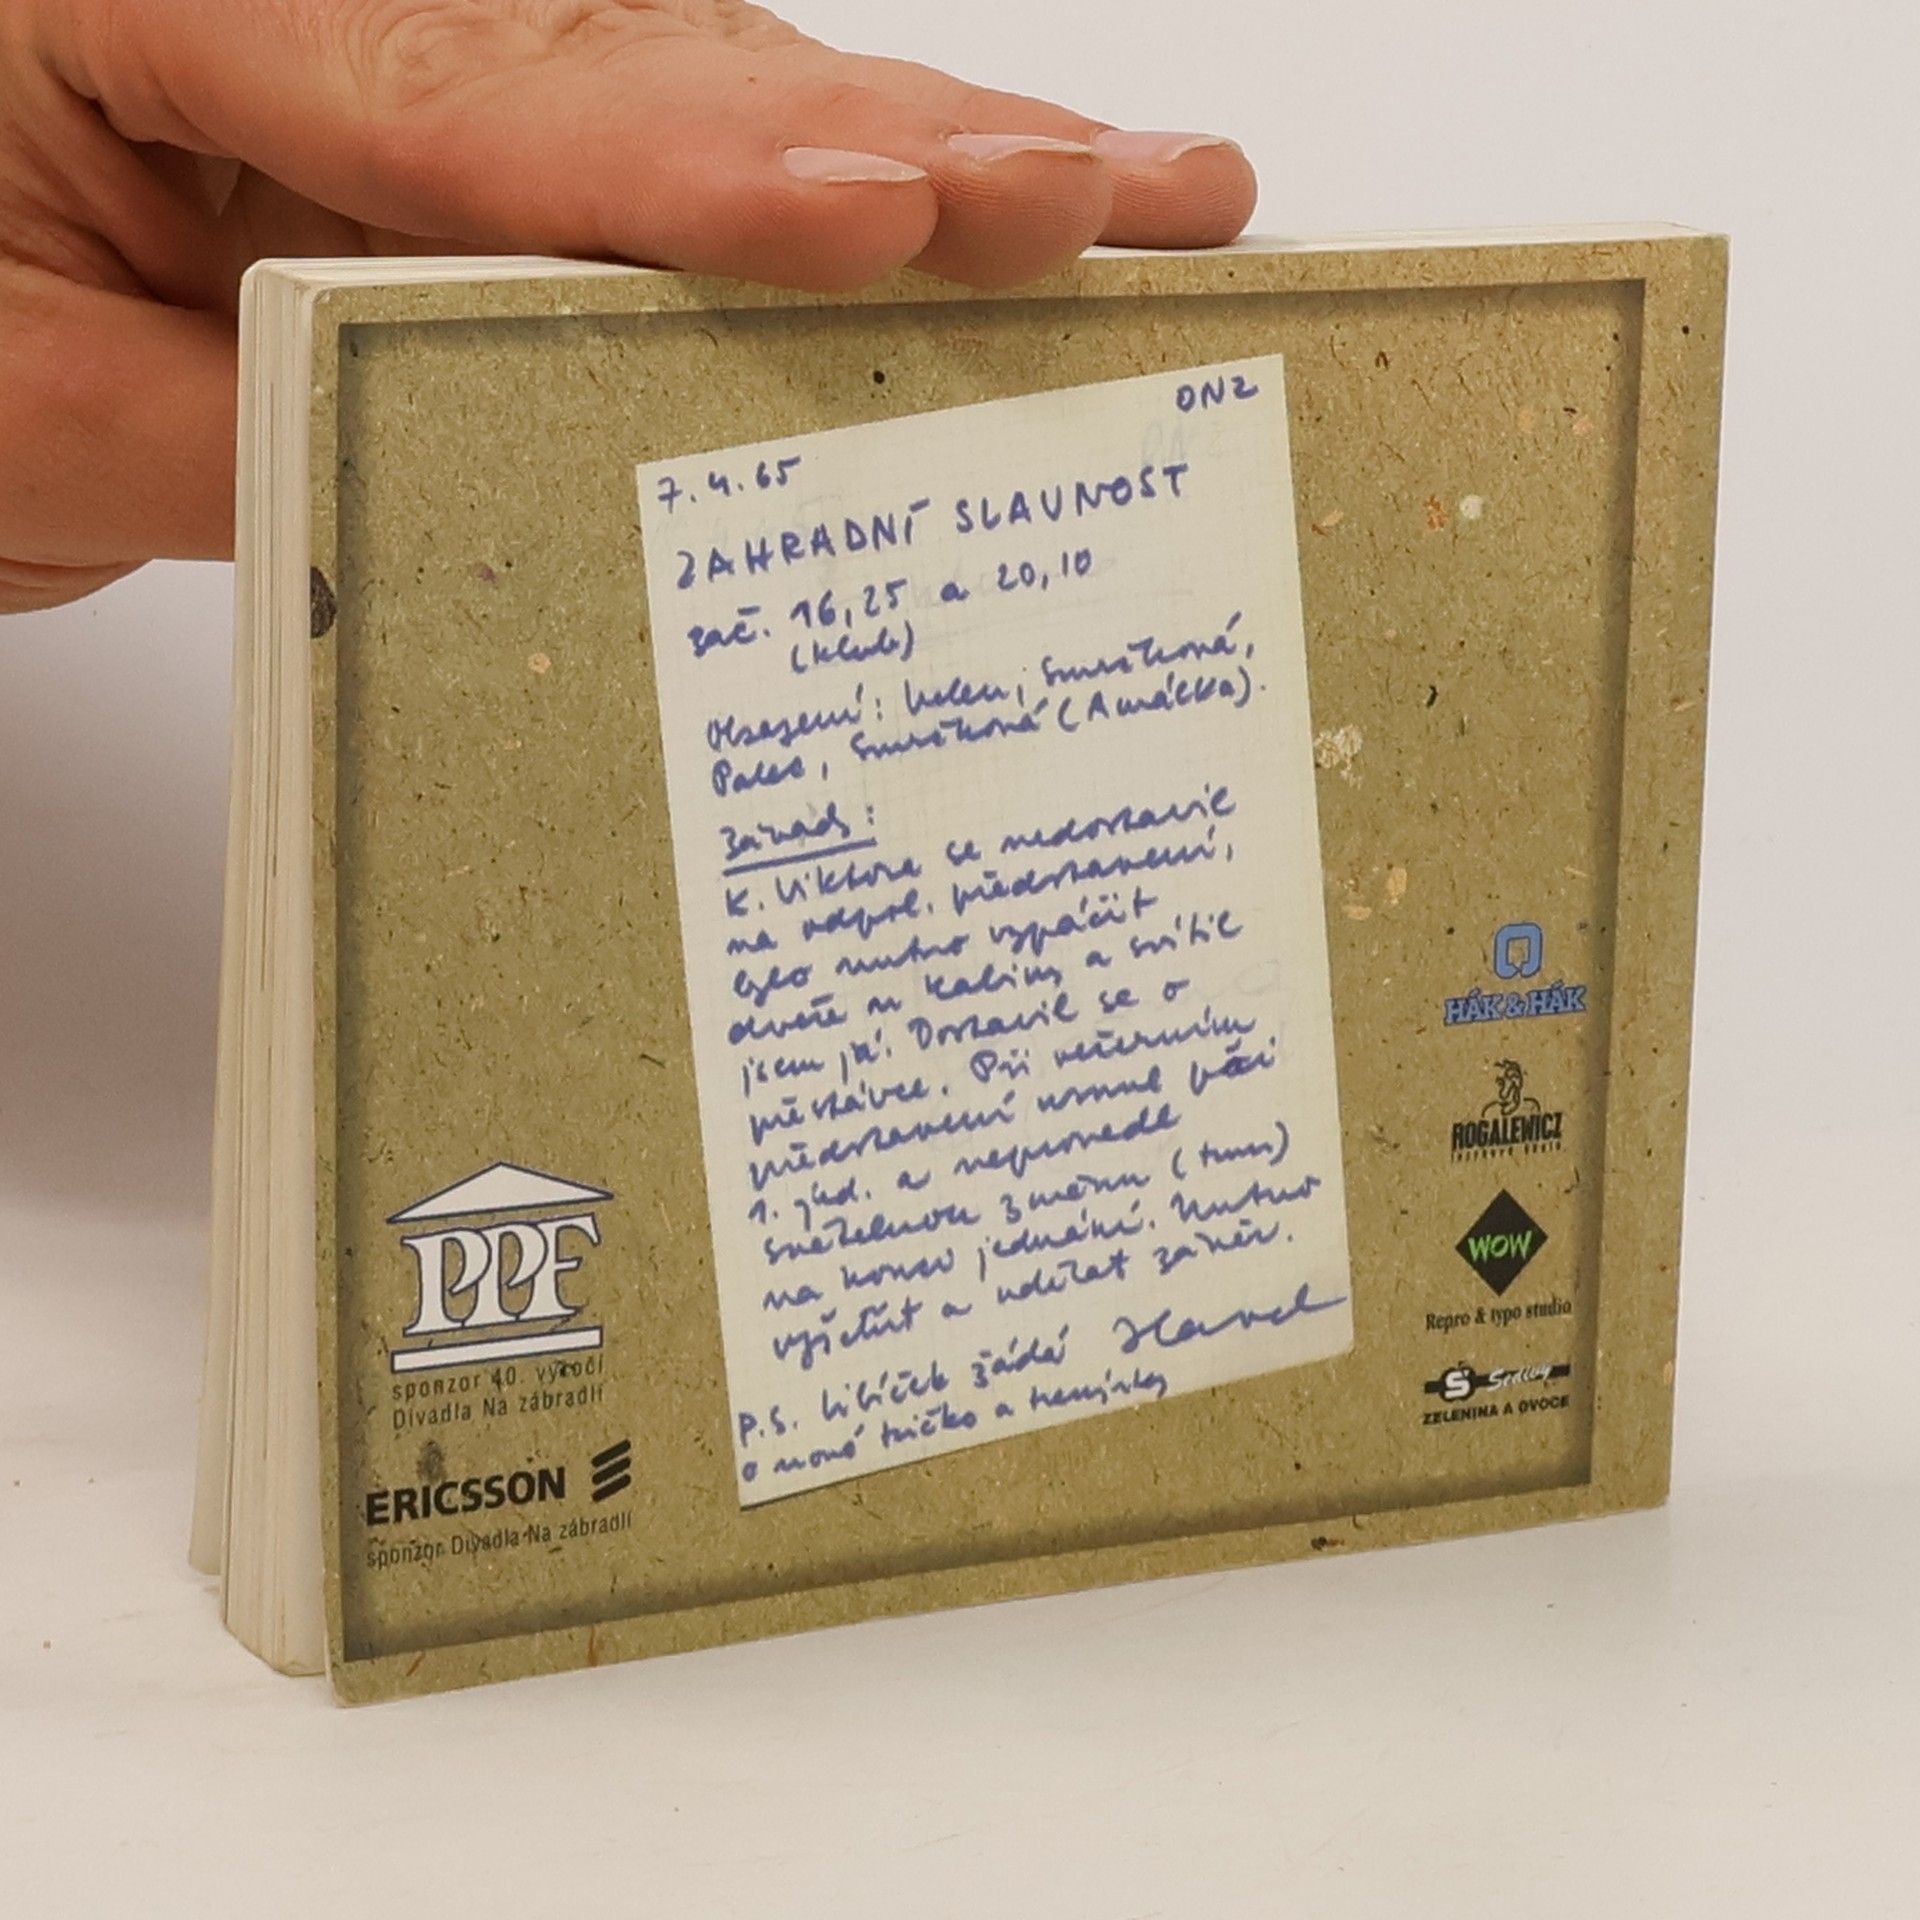 DNZ
7.4.65
ZAHRADNÍ SLAVNOST
zač. 16,25 a 20,10
(klub)
Obsazení: Velen, Smrčková,
Palec, Smrčková (Amálka).
Závady:
K. Viktora se nedostavil
na odpol. představení,
bylo nutno vypáčit
dveře u kabiny a svítil
jsem já. Dostavil se o
přestávce. Při večerním
představení usnul při
1. jed. a neprovedl
světelnou změnu (tmu)
na konci jednání. Nutno
vyšetřit a udělat závěr.
Havel
P.S. Libíček žádá
o nové tričko a trenýrky
PPF
sponzor 40. výročí
Divadla Na zábradlí
ERICSSON
sponzor Divadla Na zábradlí
HÁK & HÁK
ROGALEWICZ
WOW
Repro & typo studio
Š
ZELENINA A OVOCE